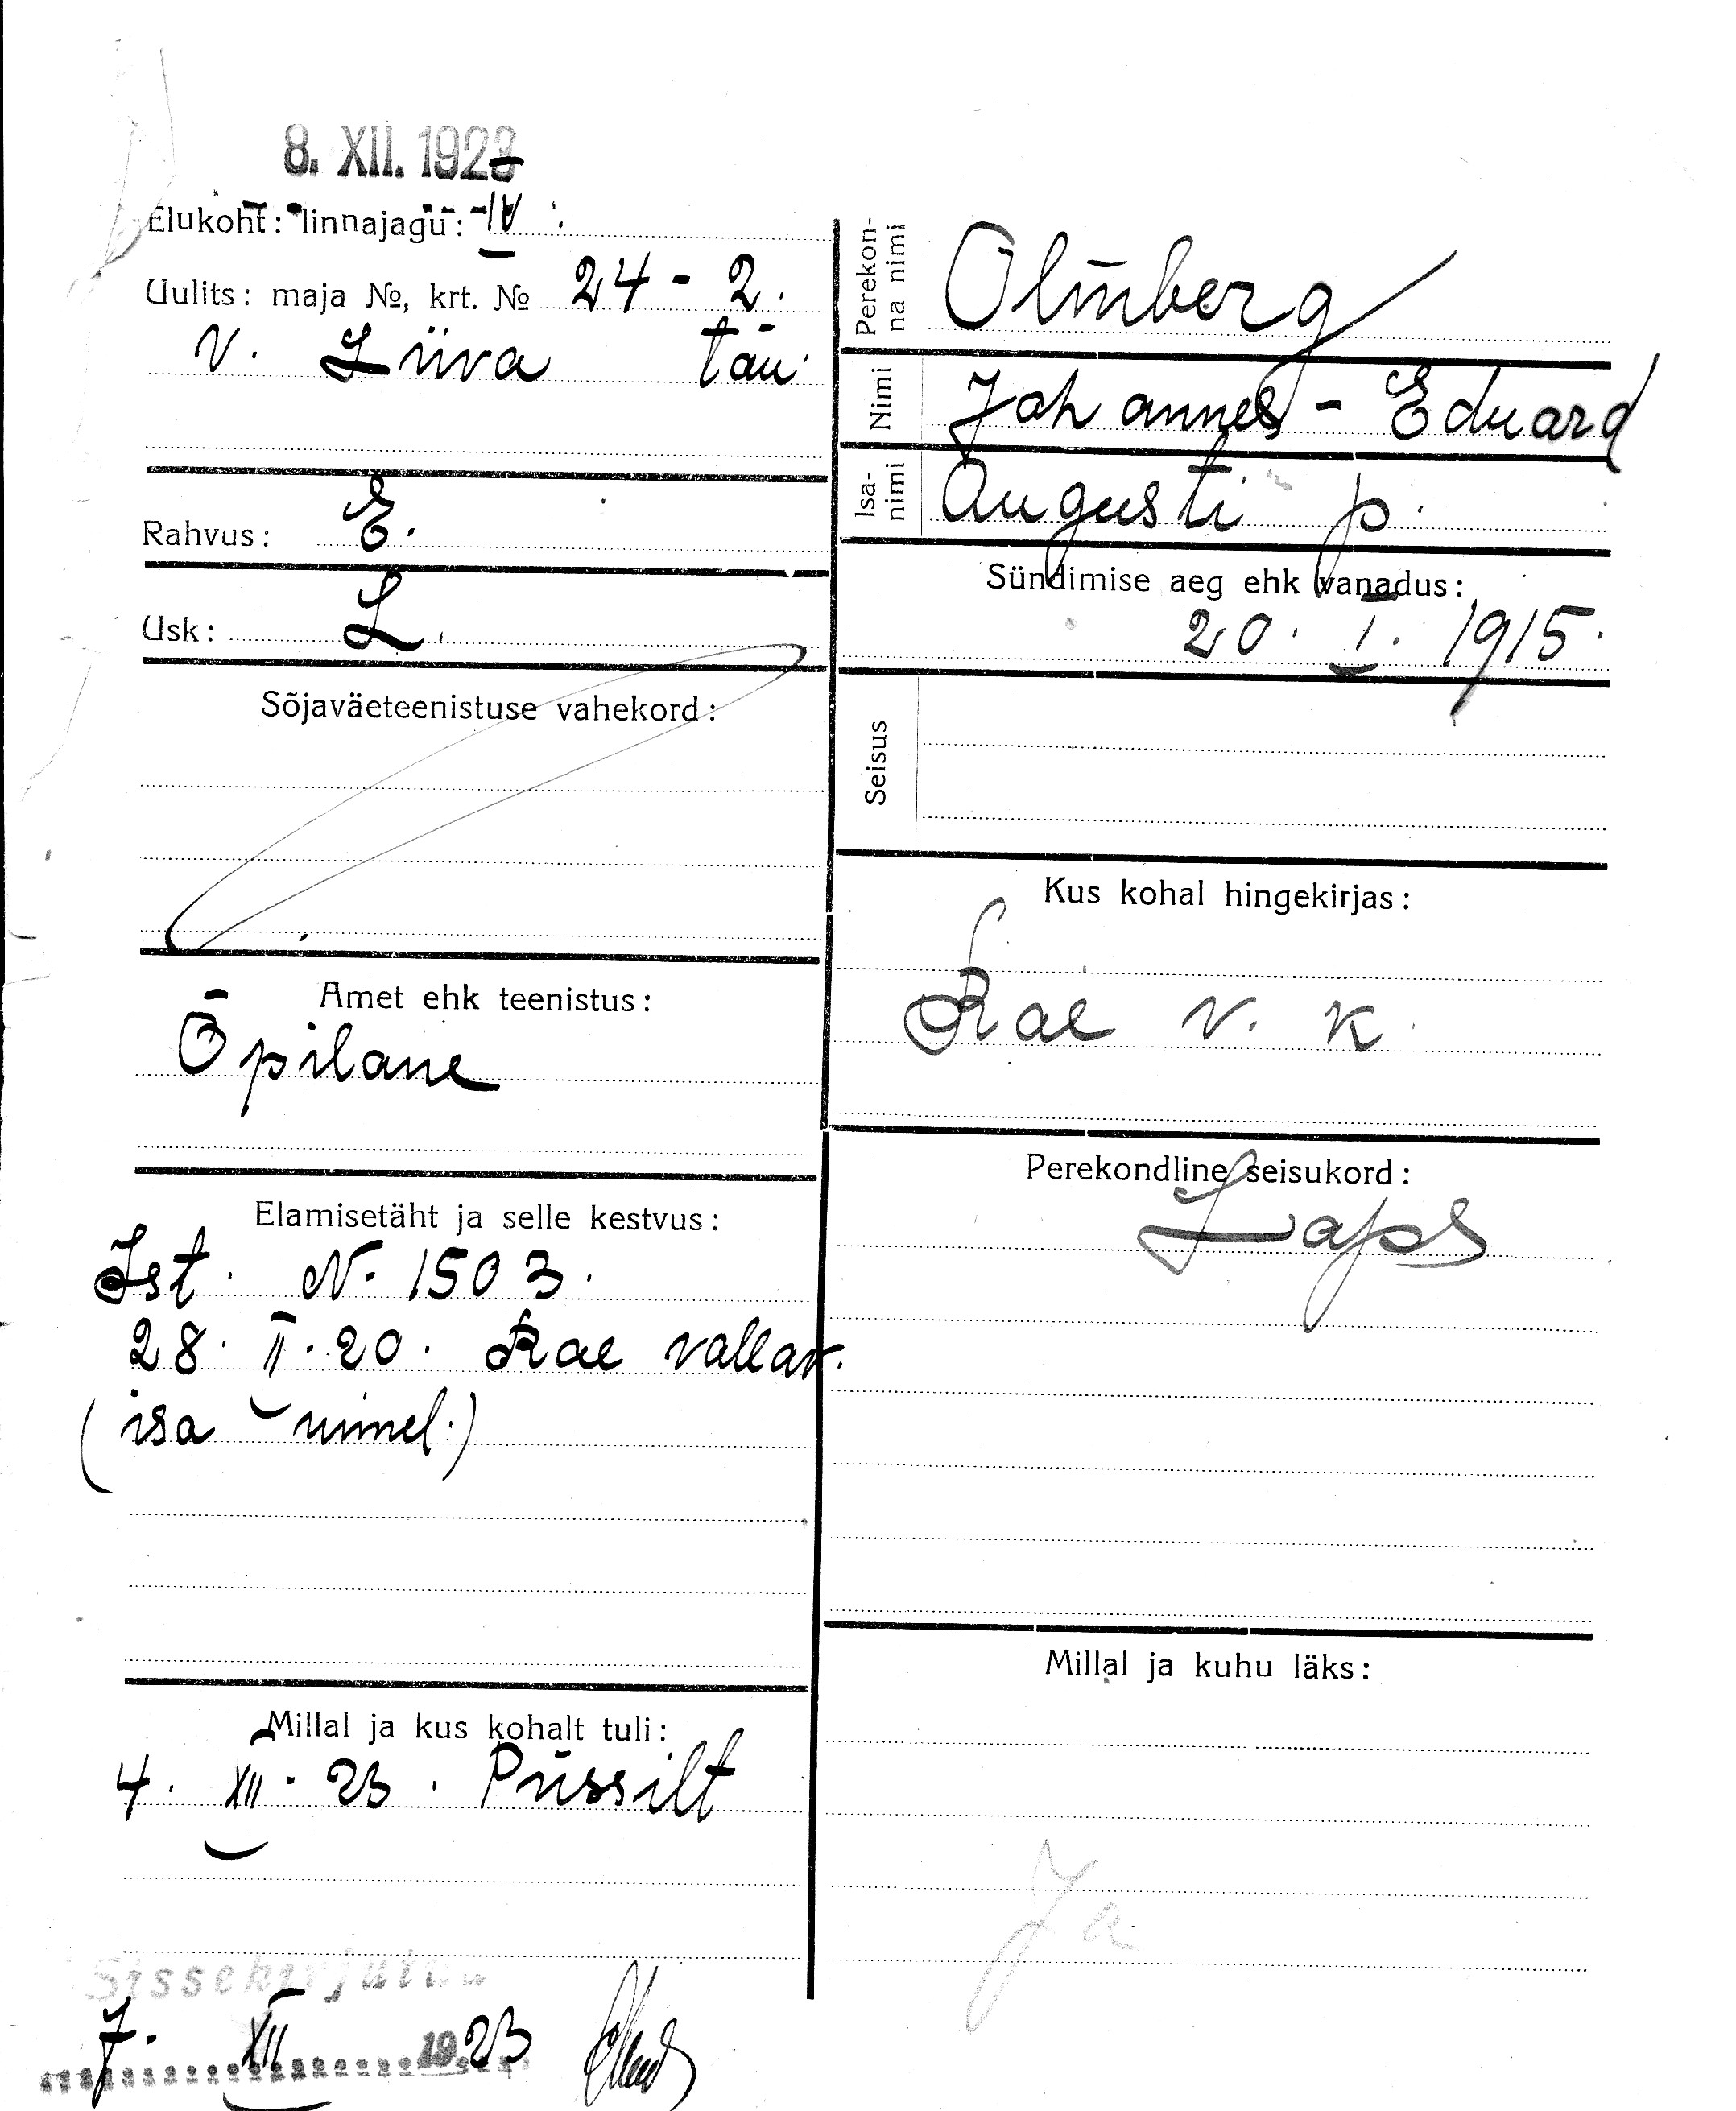 8. XII. 1923
Elukoht: linnajagu: IV
Uulits: maja №, krt. № 24 - 2.
V. Liiva tän.
Rahvus: E.
Usk: L.
Sõjaväeteenistuse vahekord:
Amet ehk teenistus:
Õpilane
Elamisetäht ja selle kestvus:
Ist. N. 1503.
28. II. 20. Rae vallav.
(isa nimel.)
Millal ja kus kohalt tuli:
4. XII. 23. Püssilt
Sissekirjutatud
7. XII 1923
Perekon-
na nimi Olmberg
Nimi Johannes - Eduard
Isa-
nimi Augusti p.
Sündimise aeg ehk vanadus:
20. I. 1915.
Seisus
Kus kohal hingekirjas:
Rae v. k.
Perekondline seisukord:
Laps
Millal ja kuhu läks:
Ja